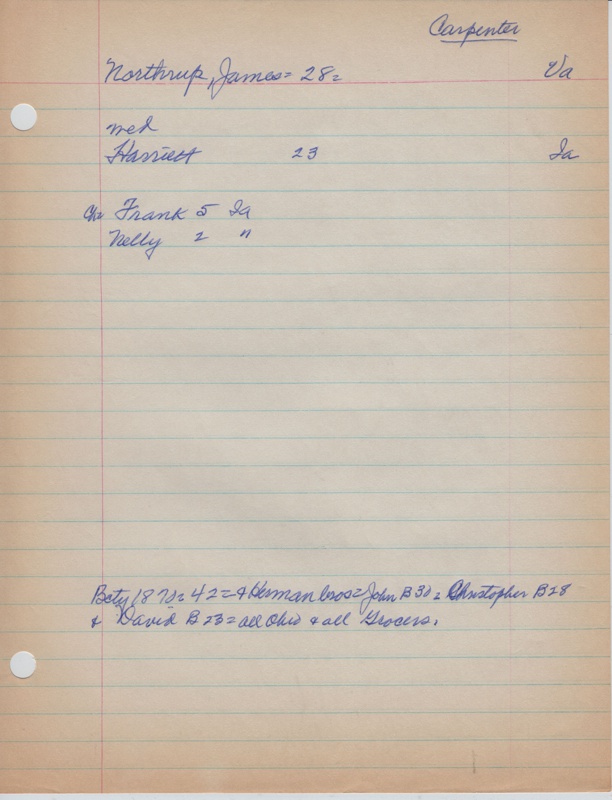 Carpenter
Northrup, James = 28 = Va
med
Harriett 23 Ia
Ch Frank 5 Ia
Nelly 2 "
Bcty 1870 = 42 = & Herman bros = John B 30 = Christopher B 28
& David B 23 = all Ohio & all Grocers.